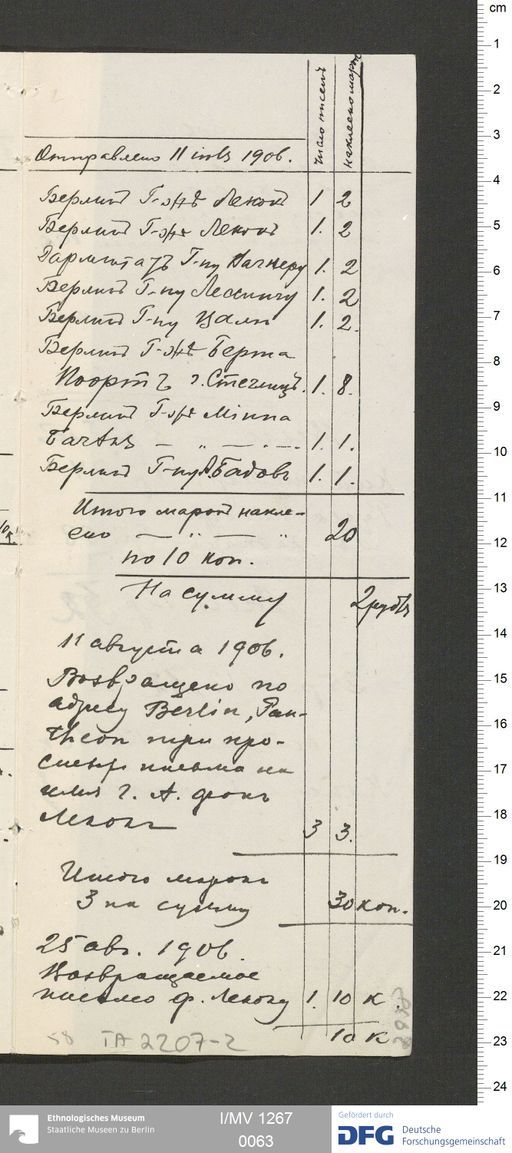 число писемъ
наклеено марок
Отправлено 11 1906.
Берлинъ Г-жѣ Лекокъ 1. 2
Берлинъ Г-жѣ Лекокъ 1. 2
Дармштадтъ Г-ну Вагнеру 1. 2
Берлинъ Г-ну 1. 2
Берлинъ Г-ну 1. 2.
Берлинъ Г-жѣ Берта
г. Стеглицъ. 1. 8.
Берлинъ Г-жѣ Минна
— „ — „ — 1. 1.
Берлинъ Г-ну 1. 1.
Итого марокъ накле-
ено — „ — „ 20
по 10 коп.
На сумму 2 рубля
11 августа 1906.
Возвращено по
адресу Berlin, Pan-
theon три про-
стыхъ письма на
имя г. А. фонъ
Лекокъ 3 3.
Итого марокъ
3 на сумму 30 коп.
25 авг. 1906.
Возвращаемое
письмо ф. Лекоку 1. 10 к
10 к
58 TA 2207-2
cm
1
2
3
4
5
6
7
8
9
10
11
12
13
14
15
16
17
18
19
20
21
22
23
24
Ethnologisches Museum
Staatliche Museen zu Berlin
I/MV 1267
0063
Gefördert durch
DFG Deutsche
Forschungsgemeinschaft